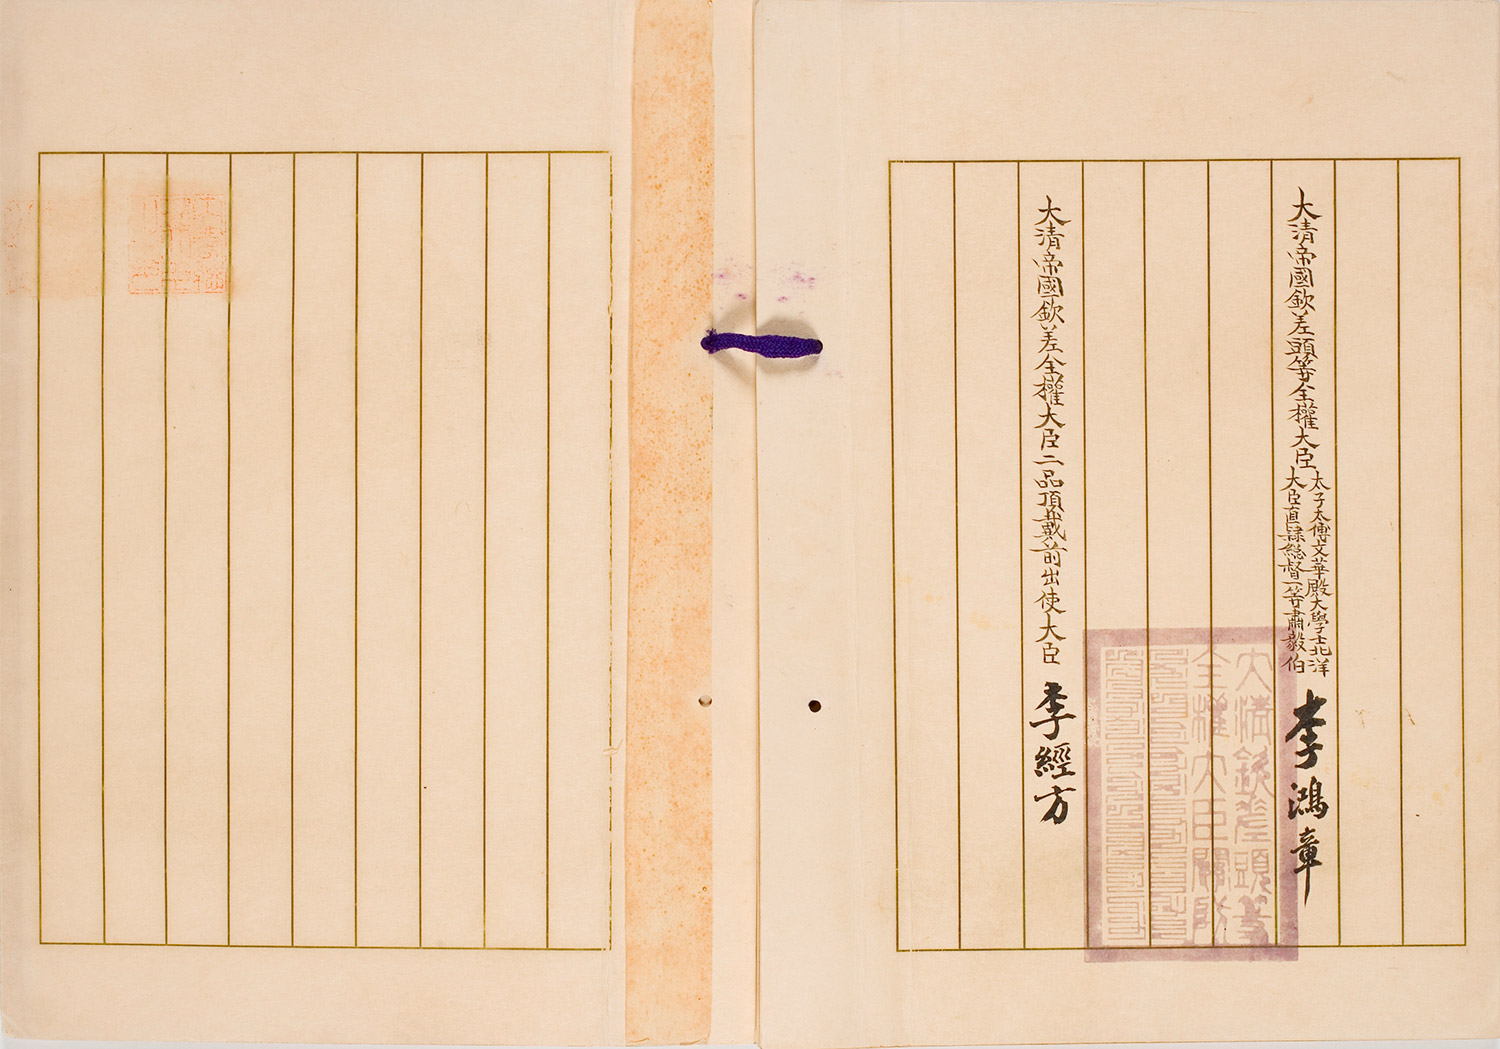 大清帝國欽差頭等全權大臣
太子太傅文華殿大學士北洋
大臣直隸總督一等肅毅伯
李鴻章
大清帝國欽差全權大臣二品頂戴前出使大臣李經方
大清欽差頭等
全權大臣關防